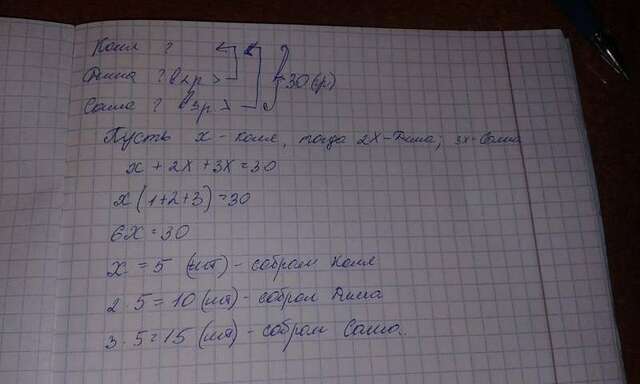 Коля ?
Дима ? в 2 р >
Саша ? в 3 р >
30 (р)
Пусть x - Коля, тогда 2x - Дима, 3x - Саша
x + 2x + 3x = 30
x (1+2+3) = 30
6x = 30
x = 5 (шт) - собрал Коля
2 · 5 = 10 (шт) - собрал Дима
3 · 5 = 15 (шт) - собрал Саша.